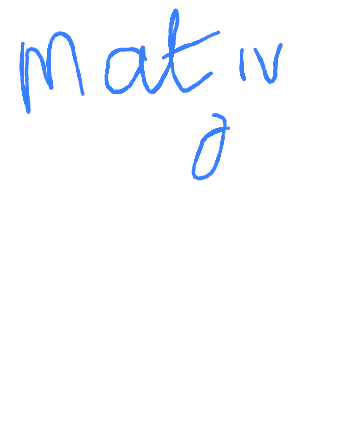 Mat iv